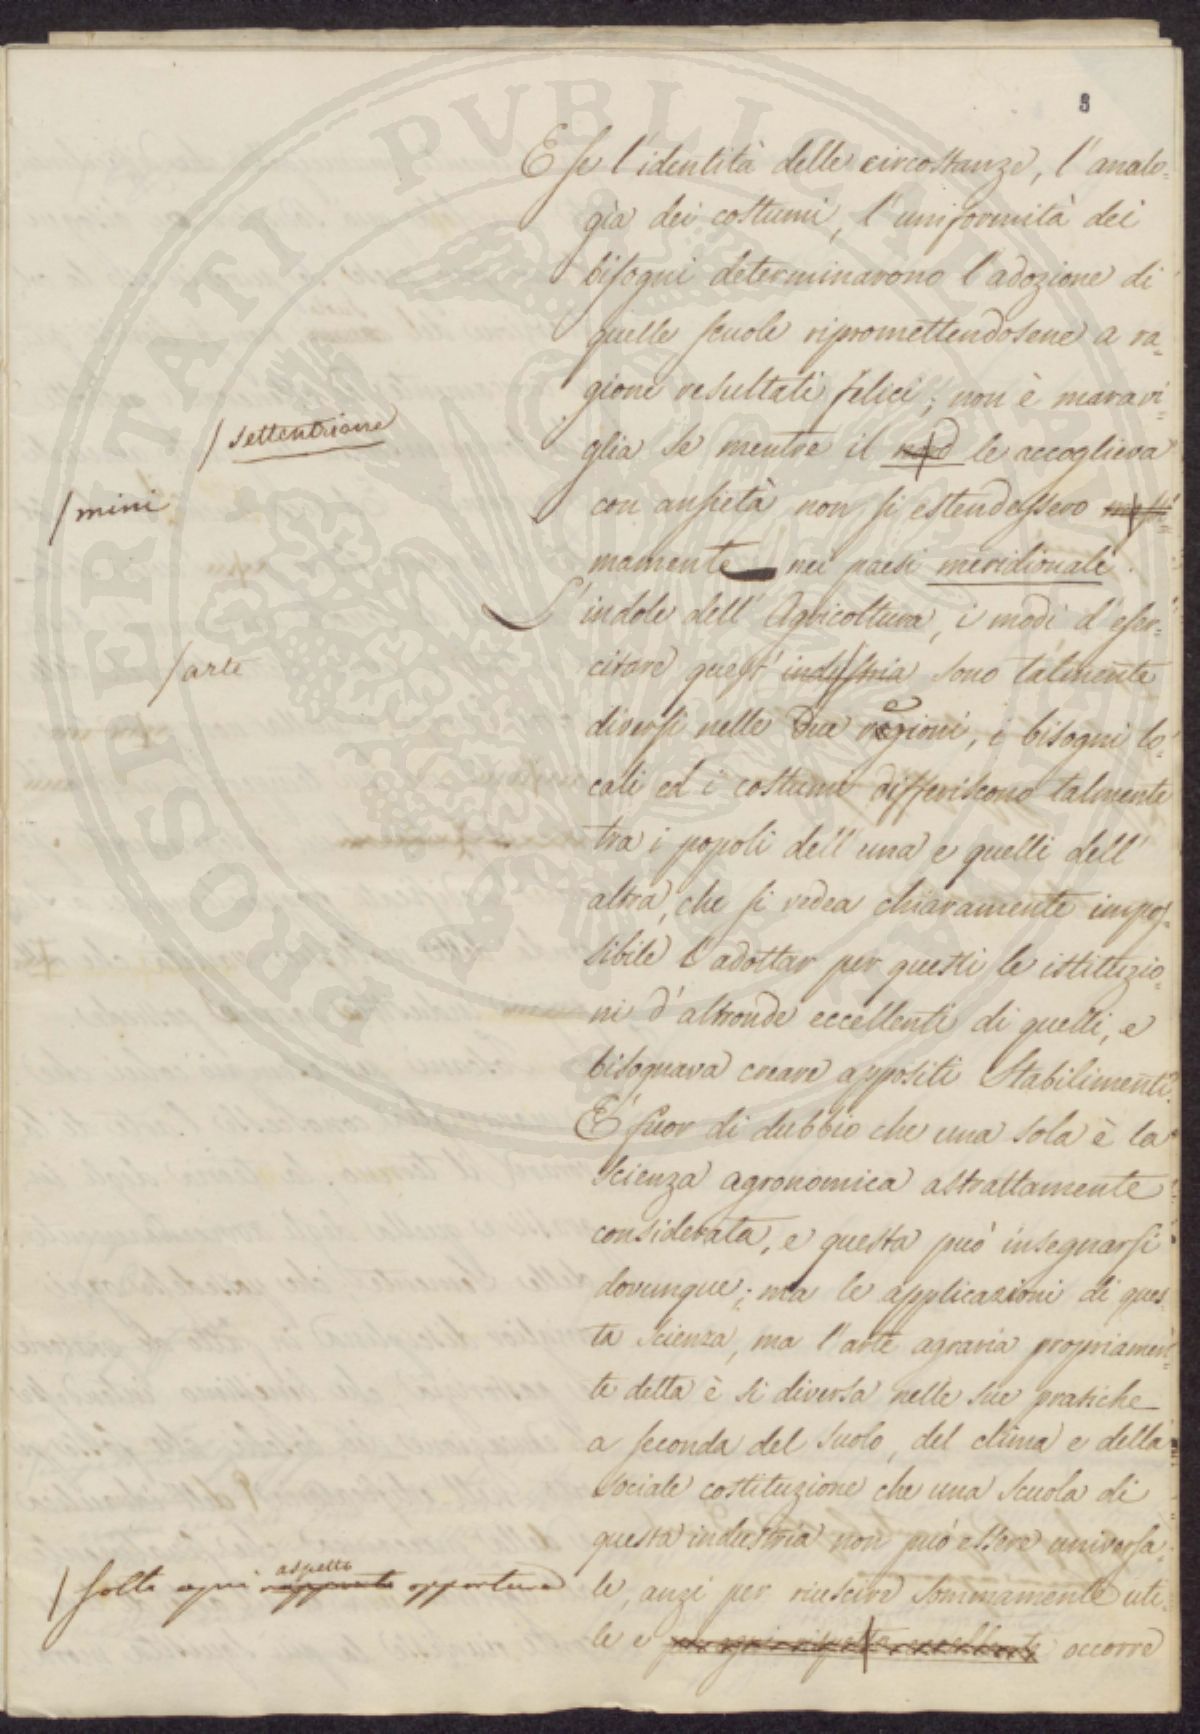 3
E se l'identità delle circostanze, l'analo-
gia dei costumi, l'uniformità dei
bisogni determinarono l'adozione di
quelle scuole ripromettendosene a ra-
gione resultati felici; non è maravi-
/settentrione
glia se mentre il nord le accoglieva
/mini
con ansietà non si estendessero messi-
mamente nei paesi meridionali.
L'indole dell'Agricoltura, i modi d'eser-
/arte
citare quest'industria sono talmente
diversi nelle due regioni, i bisogni lo-
cali ed i costumi differiscono talmente
tra i popoli dell'una e quelli dell'
altra, che si vedea chiaramente impos-
sibile l'adottar per questi le istituzio-
ni d'altronde eccellenti di quelli, e
bisognava creare appositi Stabilimenti.
E' fuor di dubbio che una sola è la
scienza agronomica astrattamente
considerata, e questa può insegnarsi
dovunque; ma le applicazioni di ques-
ta scienza, ma l'arte agraria propriamen-
te detta è sì diversa nelle sue pratiche
a seconda del suolo, del clima e della
sociale costituzione che una scuola di
questa industria non può essere universa-
/sotto ogni rapporto aspetto opportuna
le, anzi per riuscire sommamente uti-
le e per ogni rispetto eccellente occorre
PROSPERITATI PVBLICAE